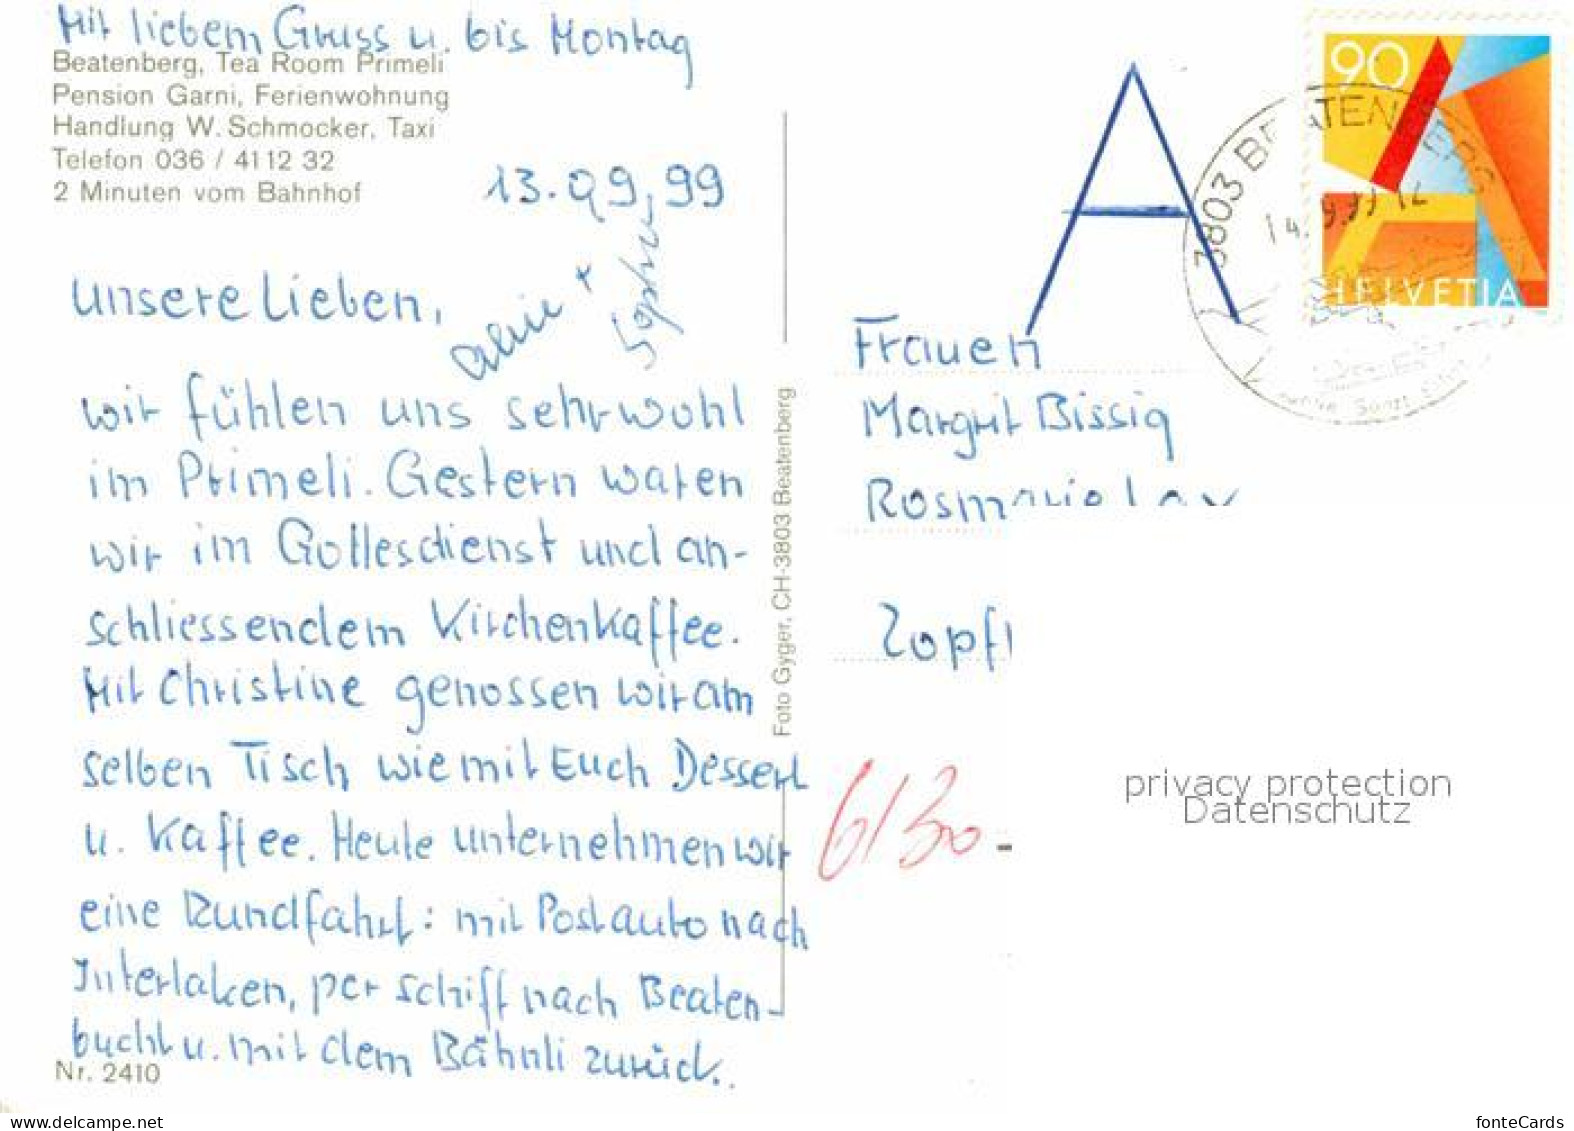 Mit liebem Gruss u. bis Montag
Beatenberg, Tea Room Primeli
Pension Garni, Ferienwohnung
Handlung W. Schmocker, Taxi
Telefon 036 / 41 12 32
2 Minuten vom Bahnhof
13.09.99
Unsere Lieben,
wir fühlen uns sehr wohl
im Primeli. Gestern waren
wir im Gottesdienst und an-
schliessendem Kirchenkaffee.
Mit Christine genossen wir am
selben Tisch wie mit Euch Dessert
u. Kaffee. Heute unternehmen wir
eine Rundfahrt: mit Postauto nach
Interlaken, per Schiff nach Beaten-
bucht u. mit dem Bähnli zurück.
Nr. 2410
Foto Gyger, CH-3803 Beatenberg
A
90
HELVETIA
3803 BEATENBERG
14.9.99
Frauen
Margrit Bissig
Zopf
6/300-
privacy protection
Datenschutz
www.delcampe.net
fonteCards